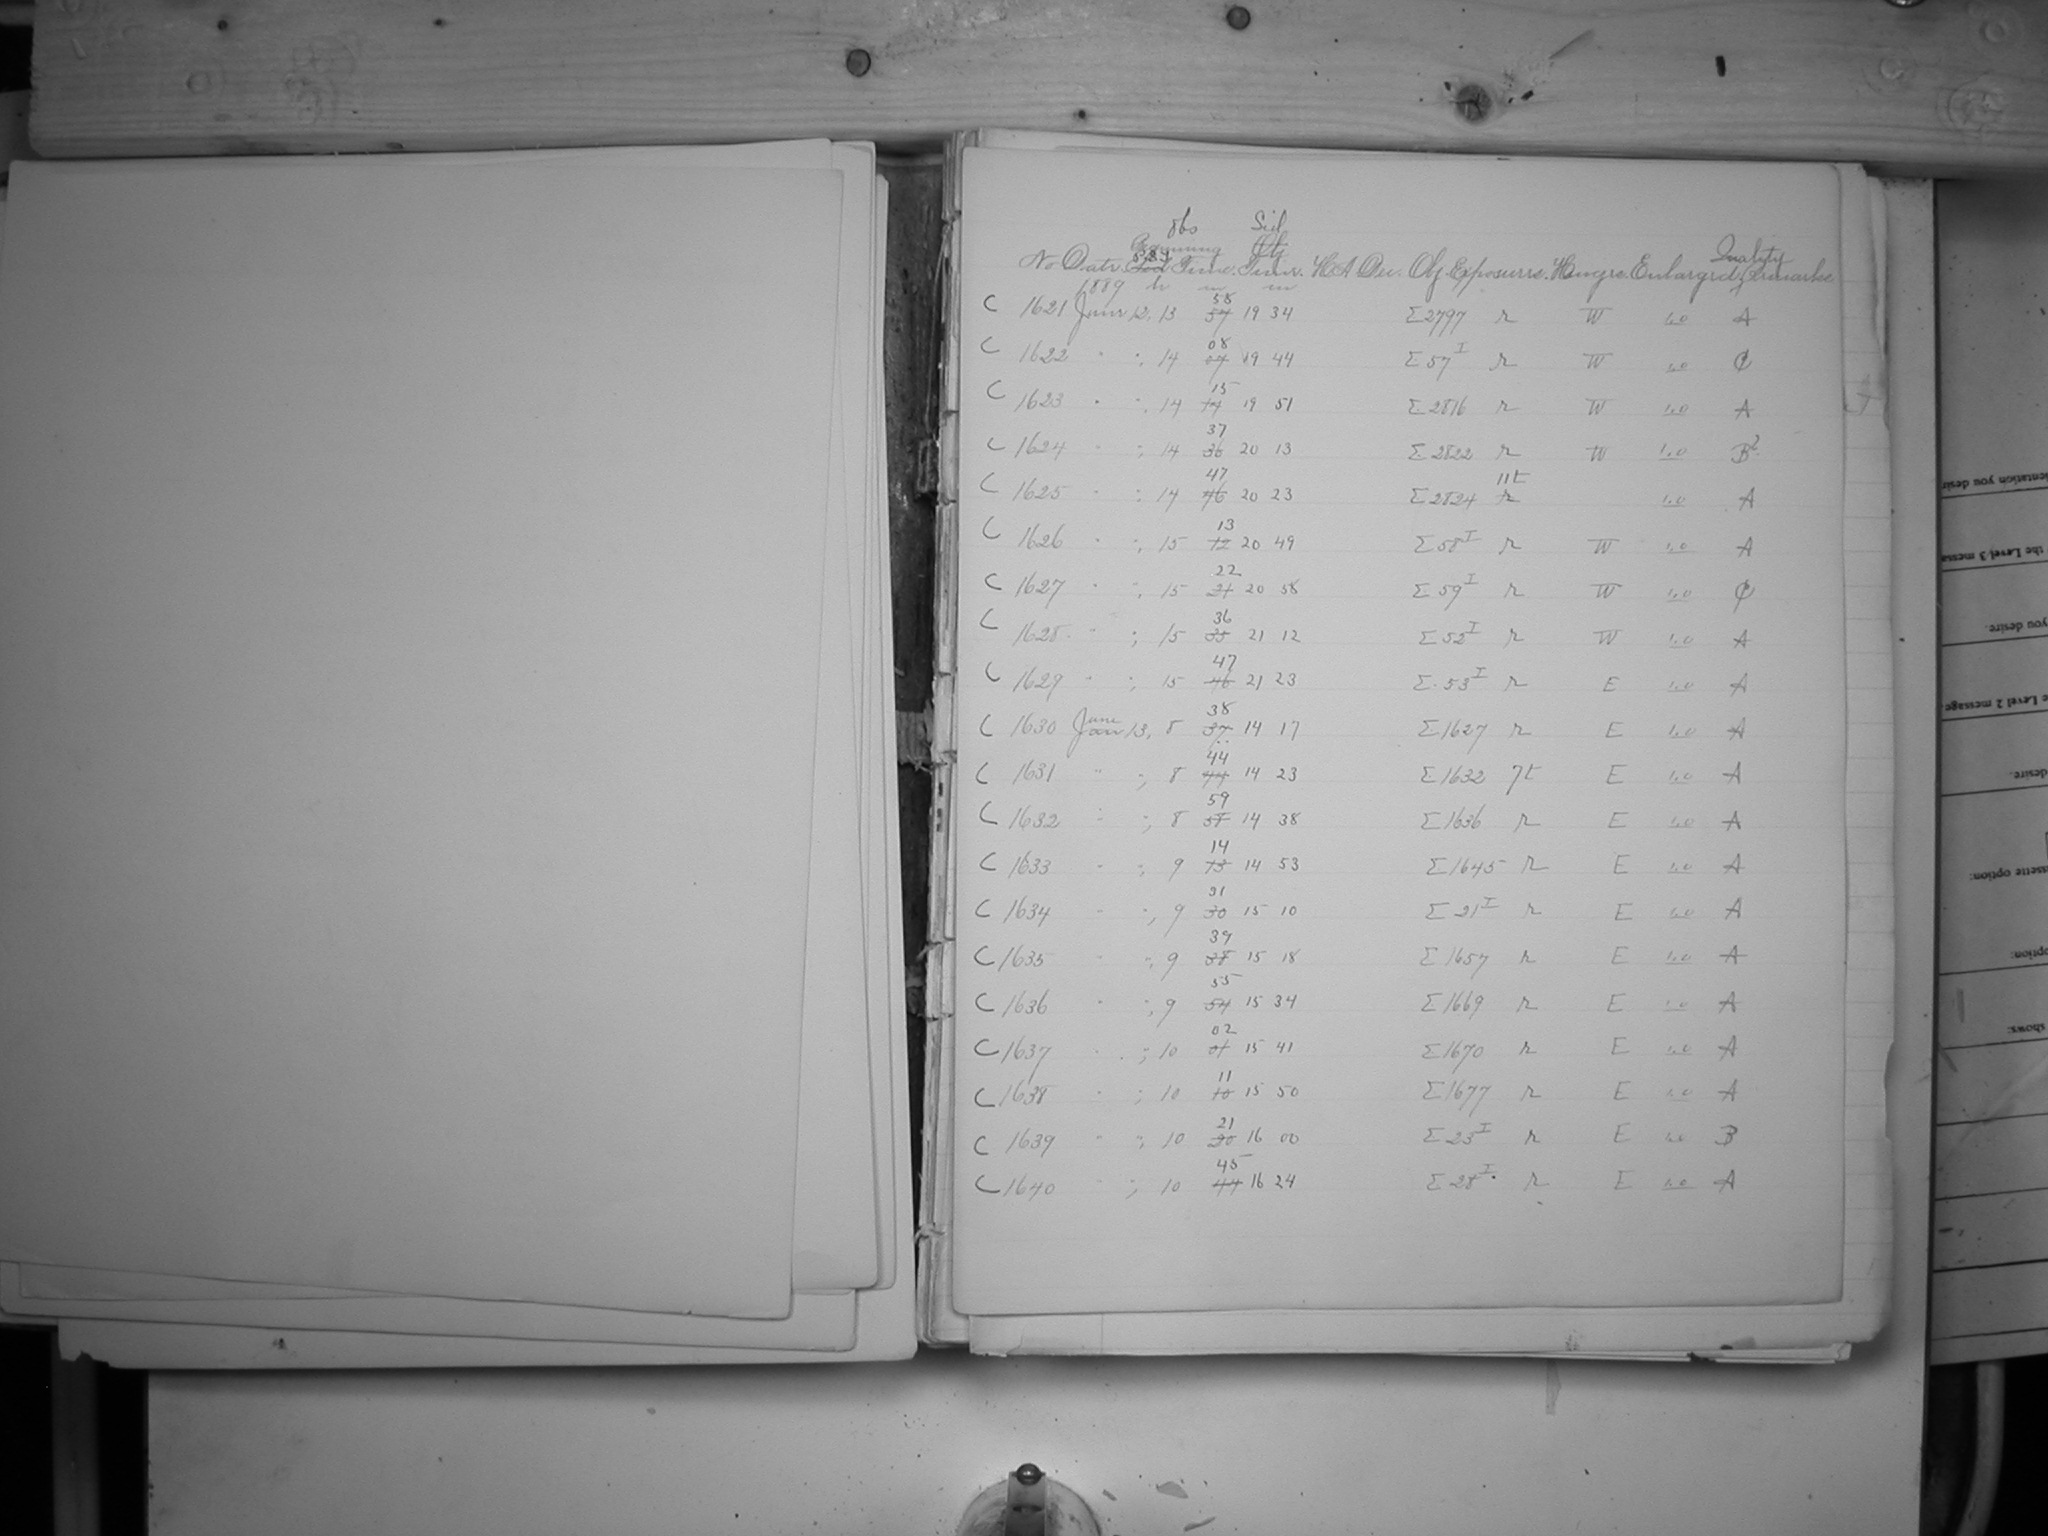 obs Sid
Beginning Obj Quality
No Date Time. Time. HA Dec. Obj. Exposures. Hinge. Enlarged. Remarks
1889 h m m
58
C 1621 June 12, 13 57 19 34 Σ2797 r W 1.0 A
08
C 1622 " ", 14 07 19 44 Σ57 I r W 1.0 C
15
C 1623 " ", 14 14 19 51 Σ2816 r W 1.0 A
37
C 1624 " ", 14 36 20 13 Σ2822 r W 1.0 B?
47 11t
C 1625 " ", 14 46 20 23 Σ2824 r 1.0 A
13
C 1626 " ", 15 12 20 49 Σ58 I r W 1.0 A
22
C 1627 " ", 15 21 20 58 Σ59 I r W 1.0 C
36
C 1628 " ", 15 35 21 12 Σ52 I r W 1.0 A
47
C 1629 " ", 15 46 21 23 Σ53 I r E 1.0 A
June 38
C 1630 Jan 13, 8 37 14 17 Σ1627 r E 1.0 A
44
C 1631 " ", 8 44 14 23 Σ1632 7t E 1.0 A
59
C 1632 " ", 8 58 14 38 Σ1636 r E 1.0 A
14
C 1633 " ", 9 13 14 53 Σ1645 r E 1.0 A
31
C 1634 " ", 9 30 15 10 Σ21 I r E 1.0 A
39
C 1635 " ", 9 38 15 18 Σ1657 r E 1.0 A
55
C 1636 " ", 9 54 15 34 Σ1669 r E 1.0 A
02
C 1637 " ", 10 01 15 41 Σ1670 r E 1.0 A
11
C 1638 " ", 10 10 15 50 Σ1677 r E 1.0 A
21
C 1639 " ", 10 20 16 00 Σ23 I r E 1.0 B
45
C 1640 " ", 10 44 16 24 Σ28 I r E 1.0 A
ientation you desir
the Level 3 messa
you desire.
e Level 2 message
desire.
ssette option:
option:
shows: